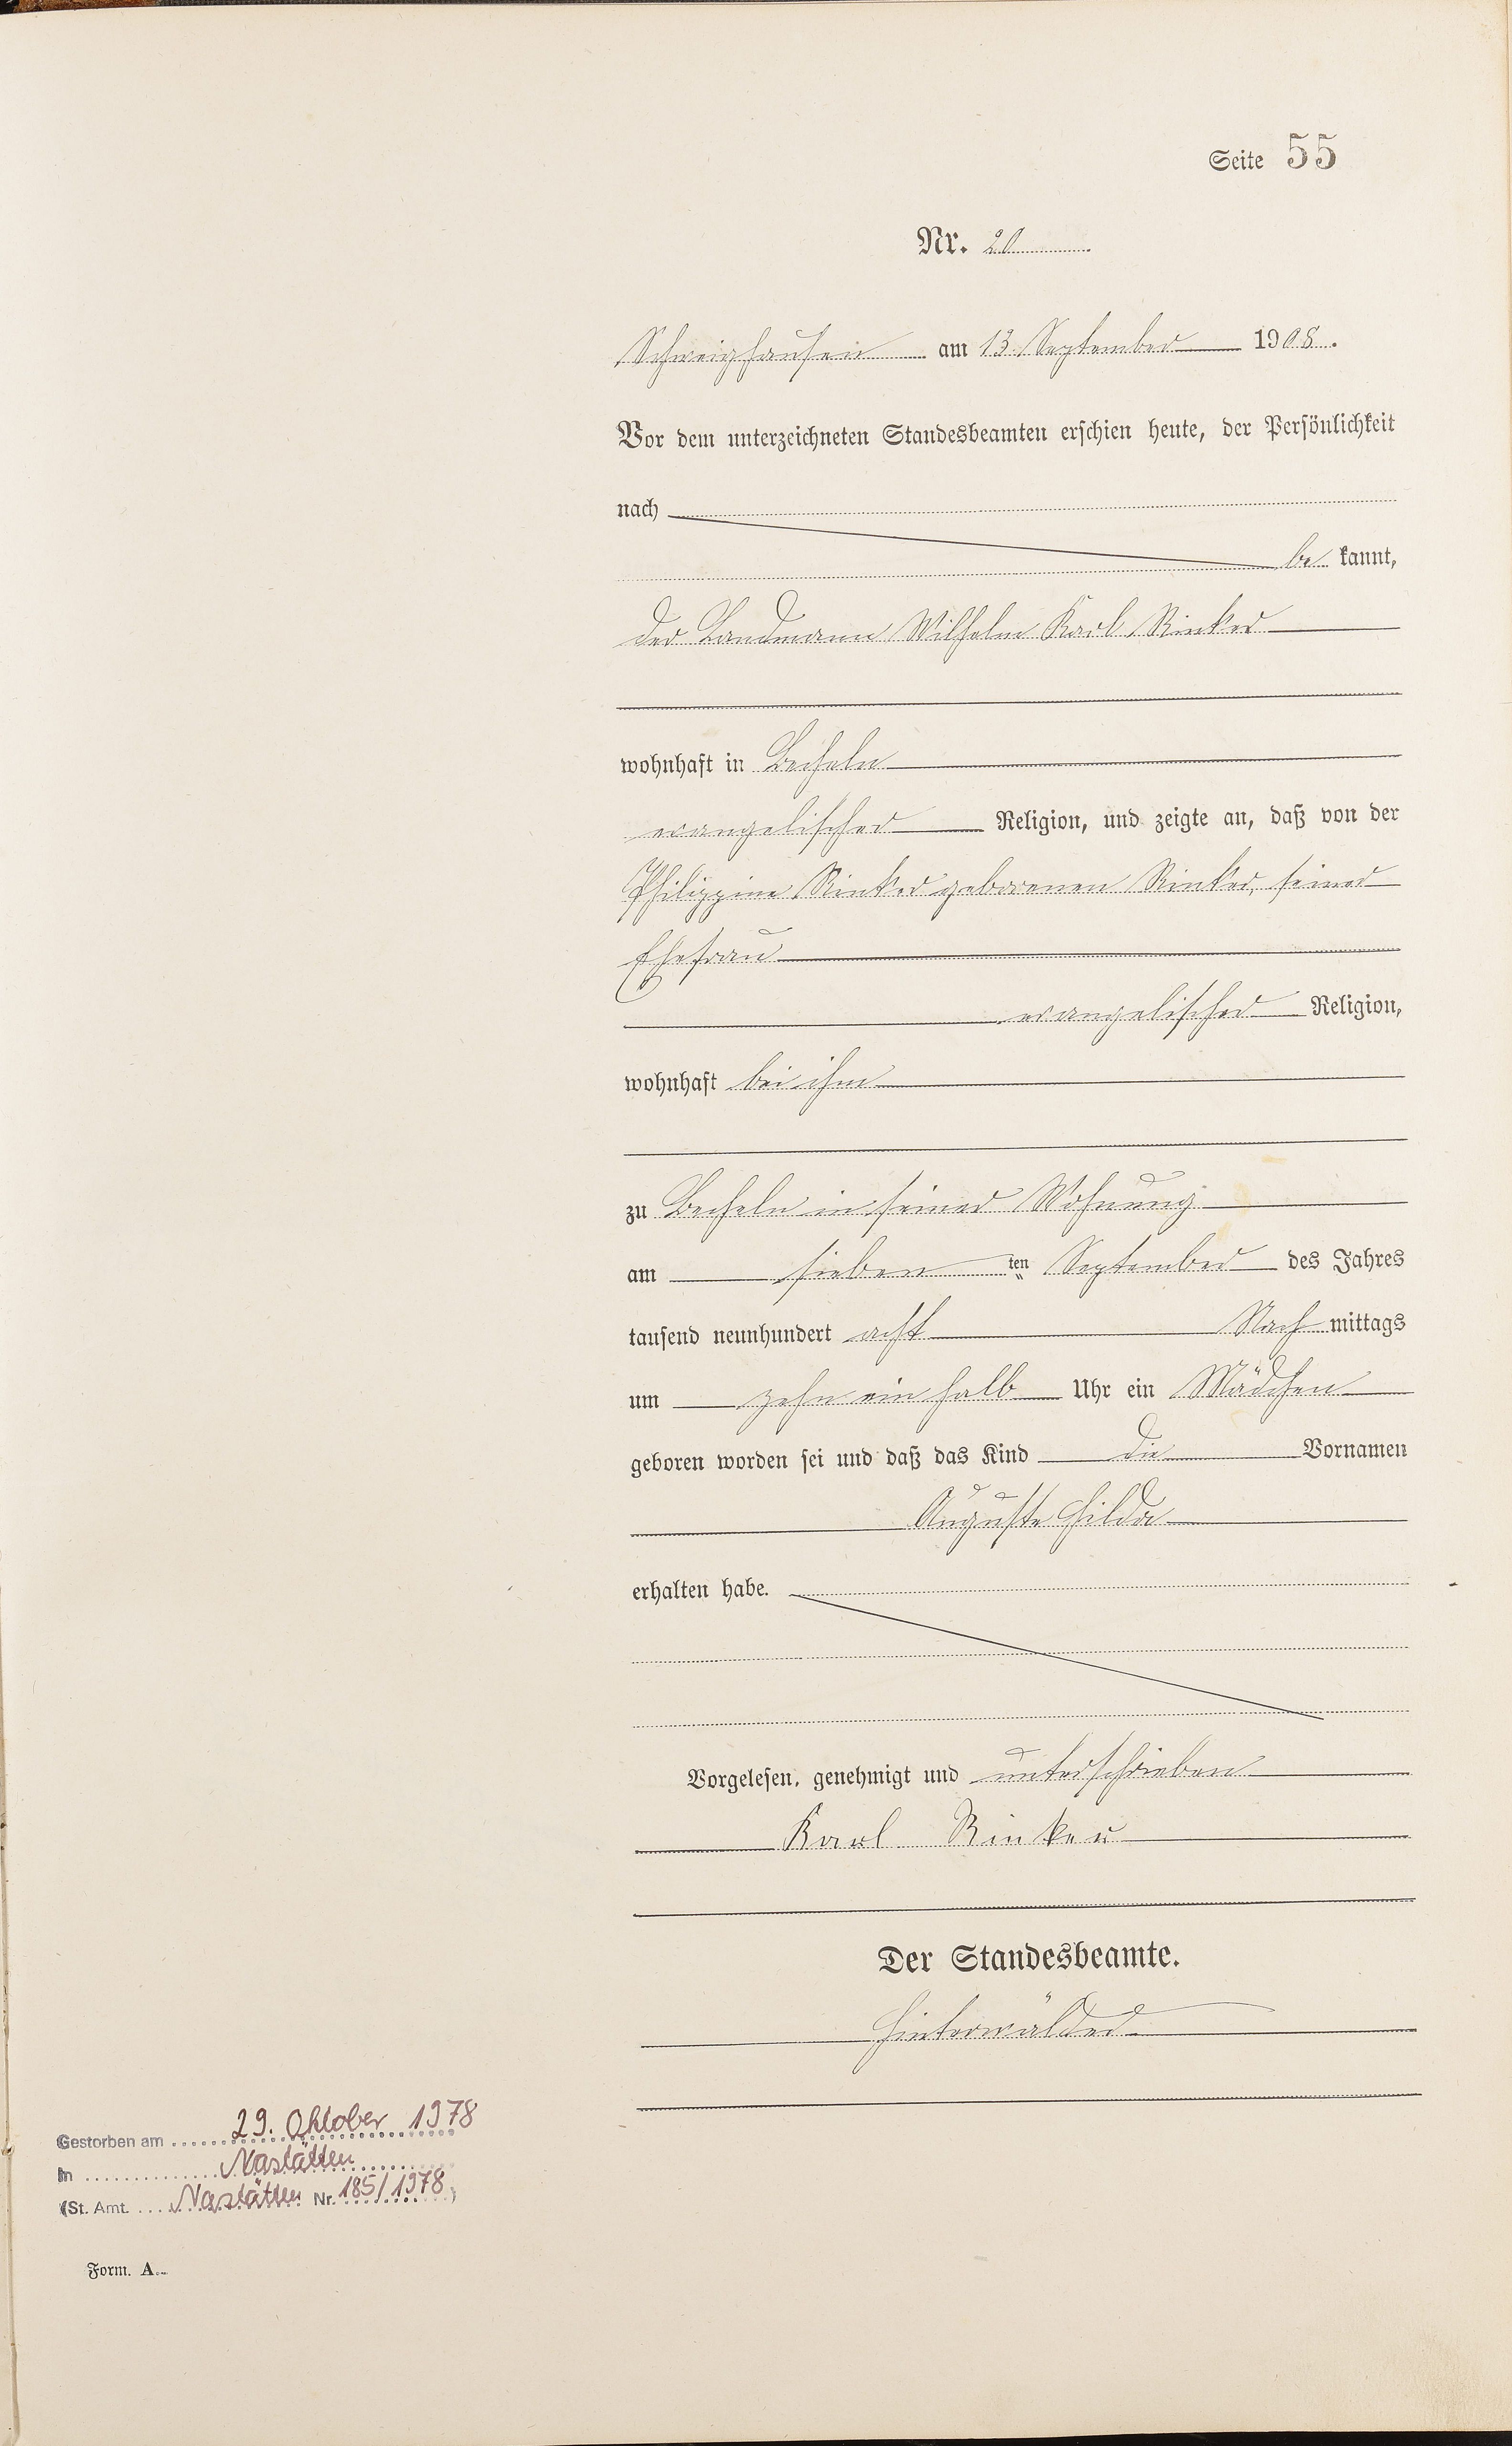 Seite 55
Nr. 20
Schweighausen am 13. September 1908.
Vor dem unterzeichneten Standesbeamten erschien heute, der Persönlichkeit
nach
be kannt,
der Landmann Wilhelm Karl Rinker
wohnhaft in Becheln
evangelischer Religion, und zeigte an, daß von der
Philippine Rinker geborenen Rinker, seiner
Ehefrau
evangelischer Religion,
wohnhaft bei ihm
zu Becheln in seiner Wohnung
am sieben ten September des Jahres
tausend neunhundert acht Nach mittags
um zehn ein halb Uhr ein Mädchen
geboren worden sei und daß das Kind die Vornamen
Auguste Hilda
erhalten habe.
Vorgelesen, genehmigt und unterschrieben
Karl Rinker
Der Standesbeamte.
Hinterwälder
Gestorben am 29. Oktober 1978
In Nastätten
(St. Amt. Nastätten Nr. 185/1978)
Form. A.